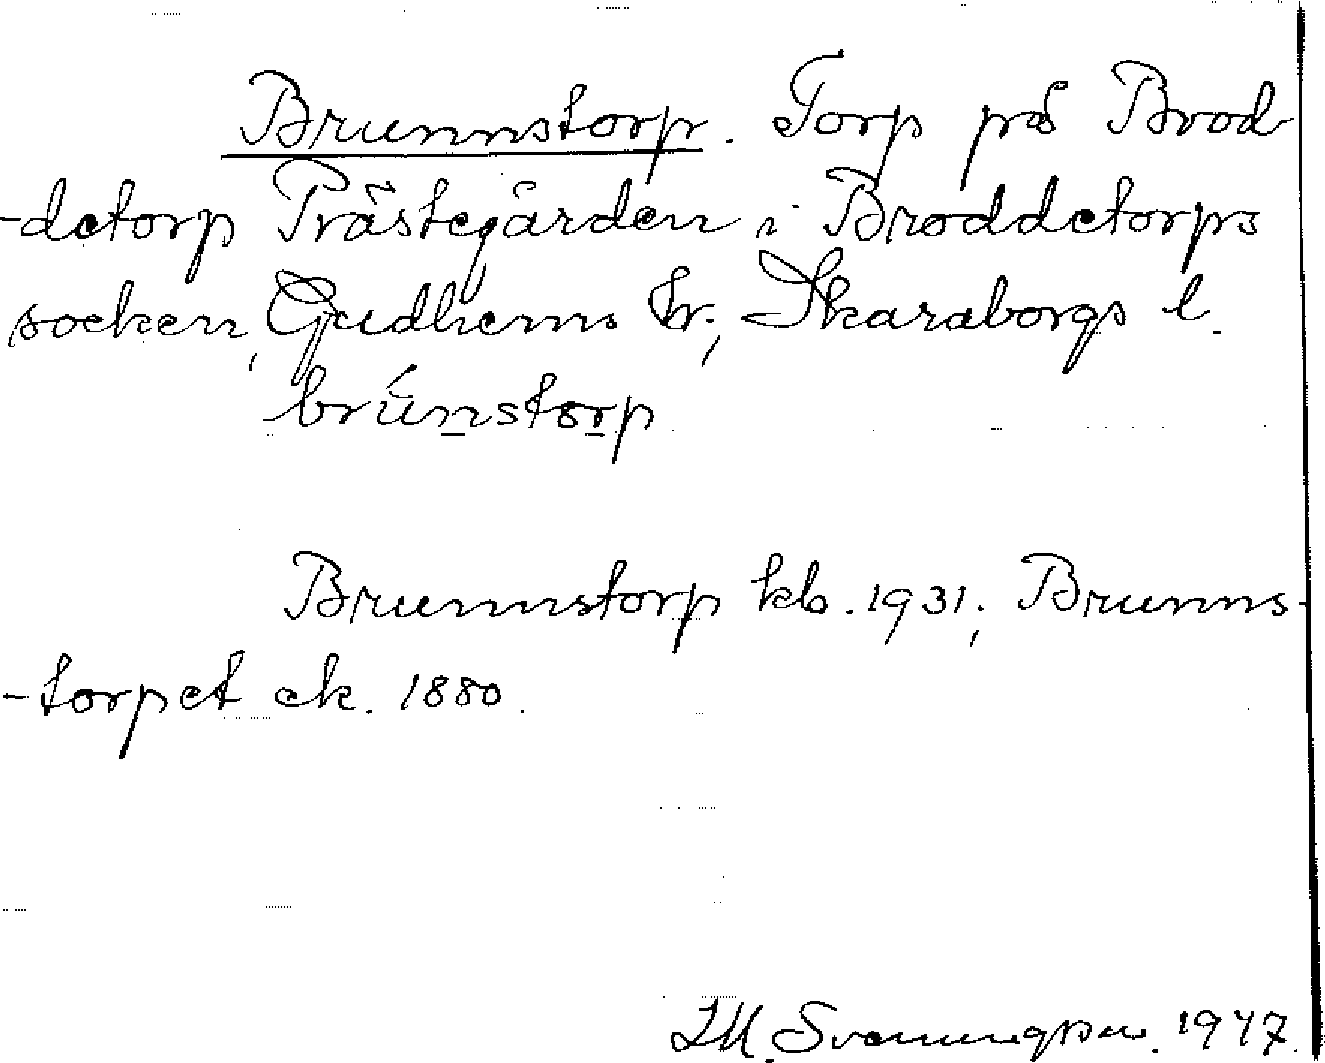 Brunnstorp. Torp på Brod
-detorp Prästegården i Broddetorps
socken, Gudhems hr; Skaraborgs l.
brúnstorp
Brunnstorp kb. 1931; Brunns-
-torpet ek. 1880.
Svenungsson. 1947.